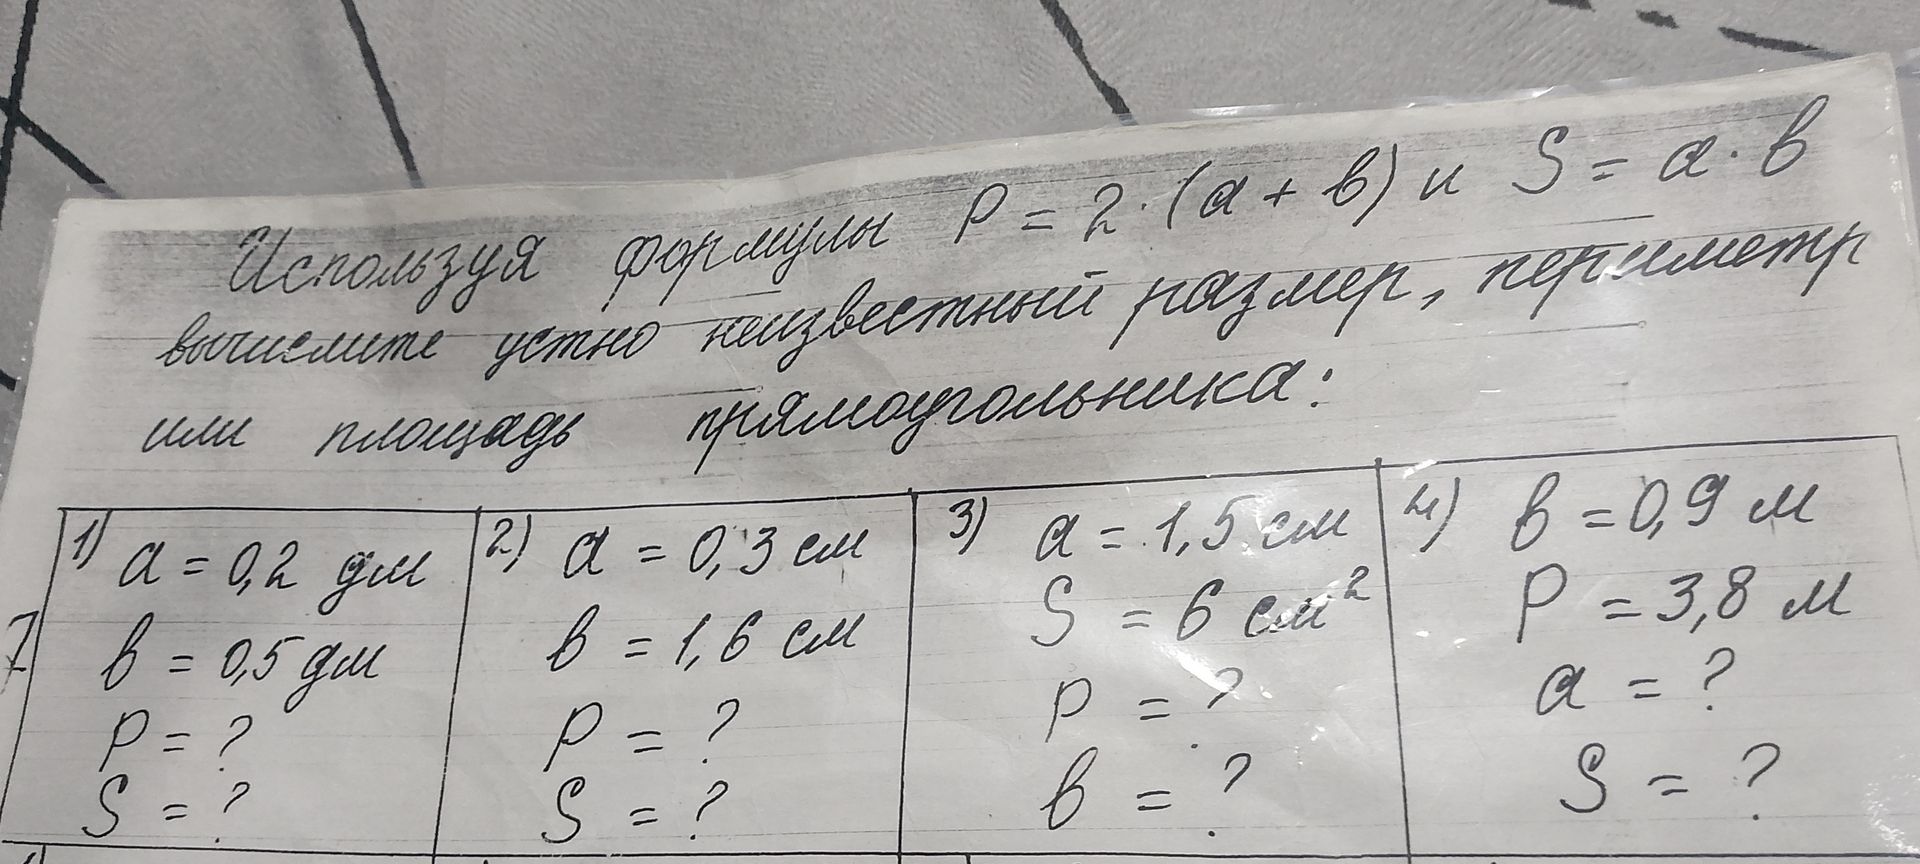 Используя формулы P = 2·(a + b) и S = a·b
вычислите устно неизвестный размер, периметр
или площадь прямоугольника:
1) a = 0,2 дм
b = 0,5 дм
P = ?
S = ?
2) a = 0,3 см
b = 1,6 см
P = ?
S = ?
3) a = 1,5 см
S = 6 см²
P = ?
b = ?
4) b = 0,9 м
P = 3,8 м
a = ?
S = ?